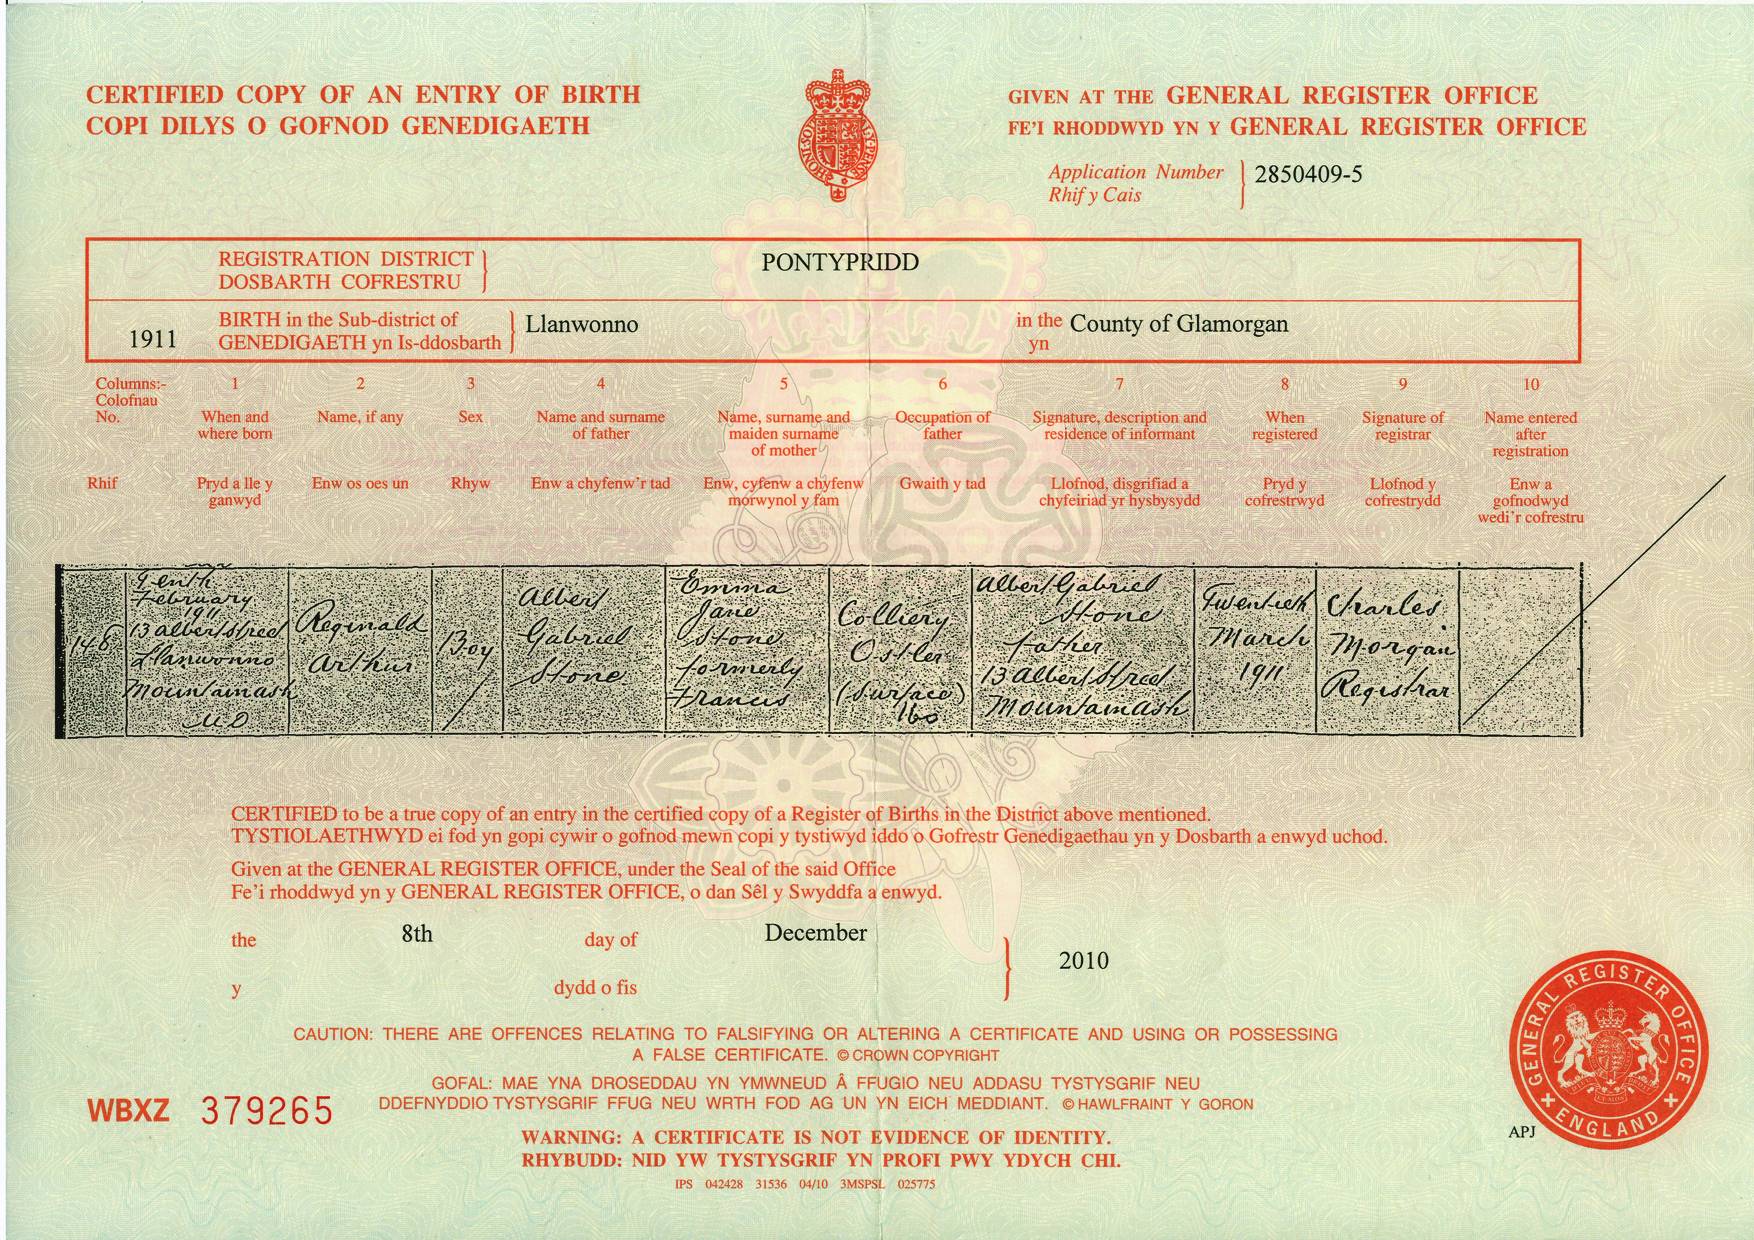 CERTIFIED COPY OF AN ENTRY OF BIRTH
COPI DILYS O GOFNOD GENEDIGAETH
GIVEN AT THE GENERAL REGISTER OFFICE
FE'I RHODDWYD YN Y GENERAL REGISTER OFFICE
Application Number
Rhif y Cais
2850409-5
REGISTRATION DISTRICT
DOSBARTH COFRESTRU
PONTYPRIDD
1911
BIRTH in the Sub-district of
GENEDIGAETH yn Is-ddosbarth
Llanwonno
in the
yn
County of Glamorgan
Columns:-
Colofnau
No.
Rhif
1
When and
where born
Pryd a lle y
ganwyd
2
Name, if any
Enw os oes un
3
Sex
Rhyw
4
Name and surname
of father
Enw a chyfenw'r tad
5
Name, surname and
maiden surname
of mother
Enw, cyfenw a chyfenw
morwynol y fam
6
Occupation of
father
Gwaith y tad
7
Signature, description and
residence of informant
Llofnod, disgrifiad a
chyfeiriad yr hysbysydd
8
When
registered
Pryd y
cofrestrwyd
9
Signature of
registrar
Llofnod y
cofrestrydd
10
Name entered
after
registration
Enw a
gofnodwyd
wedi'r cofrestru
148
Tenth
February
1911
13 Albert Street
Llanwonno
Mountainash
U.D
Reginald
Arthur
Boy
Albert
Gabriel
Stone
Emma
Jane
Stone
formerly
Francis
Colliery
Ostler
(Surface)
Albert Gabriel
Stone
father
13 Albert Street
Mountainash
Twentieth
March
1911
Charles
Morgan
Registrar
CERTIFIED to be a true copy of an entry in the certified copy of a Register of Births in the District above mentioned.
TYSTIOLAETHWYD ei fod yn gopi cywir o gofnod mewn copi y tystiwyd iddo o Gofrestr Genedigaethau yn y Dosbarth a enwyd uchod.
Given at the GENERAL REGISTER OFFICE, under the Seal of the said Office
Fe'i rhoddwyd yn y GENERAL REGISTER OFFICE, o dan Sêl y Swyddfa a enwyd.
the 8th day of December
y dydd o fis
2010
CAUTION: THERE ARE OFFENCES RELATING TO FALSIFYING OR ALTERING A CERTIFICATE AND USING OR POSSESSING
A FALSE CERTIFICATE. © CROWN COPYRIGHT
GOFAL: MAE YNA DROSEDDAU YN YMWNEUD Â FFUGIO NEU ADDASU TYSTYSGRIF NEU
DDEFNYDDIO TYSTYSGRIF FFUG NEU WRTH FOD AG UN YN EICH MEDDIANT. © HAWLFRAINT Y GORON
WBXZ 379265
WARNING: A CERTIFICATE IS NOT EVIDENCE OF IDENTITY.
RHYBUDD: NID YW TYSTYSGRIF YN PROFI PWY YDYCH CHI.
IPS 042428 31536 04/10 3MSPSL 025775
APJ
GENERAL REGISTER OFFICE
ENGLAND